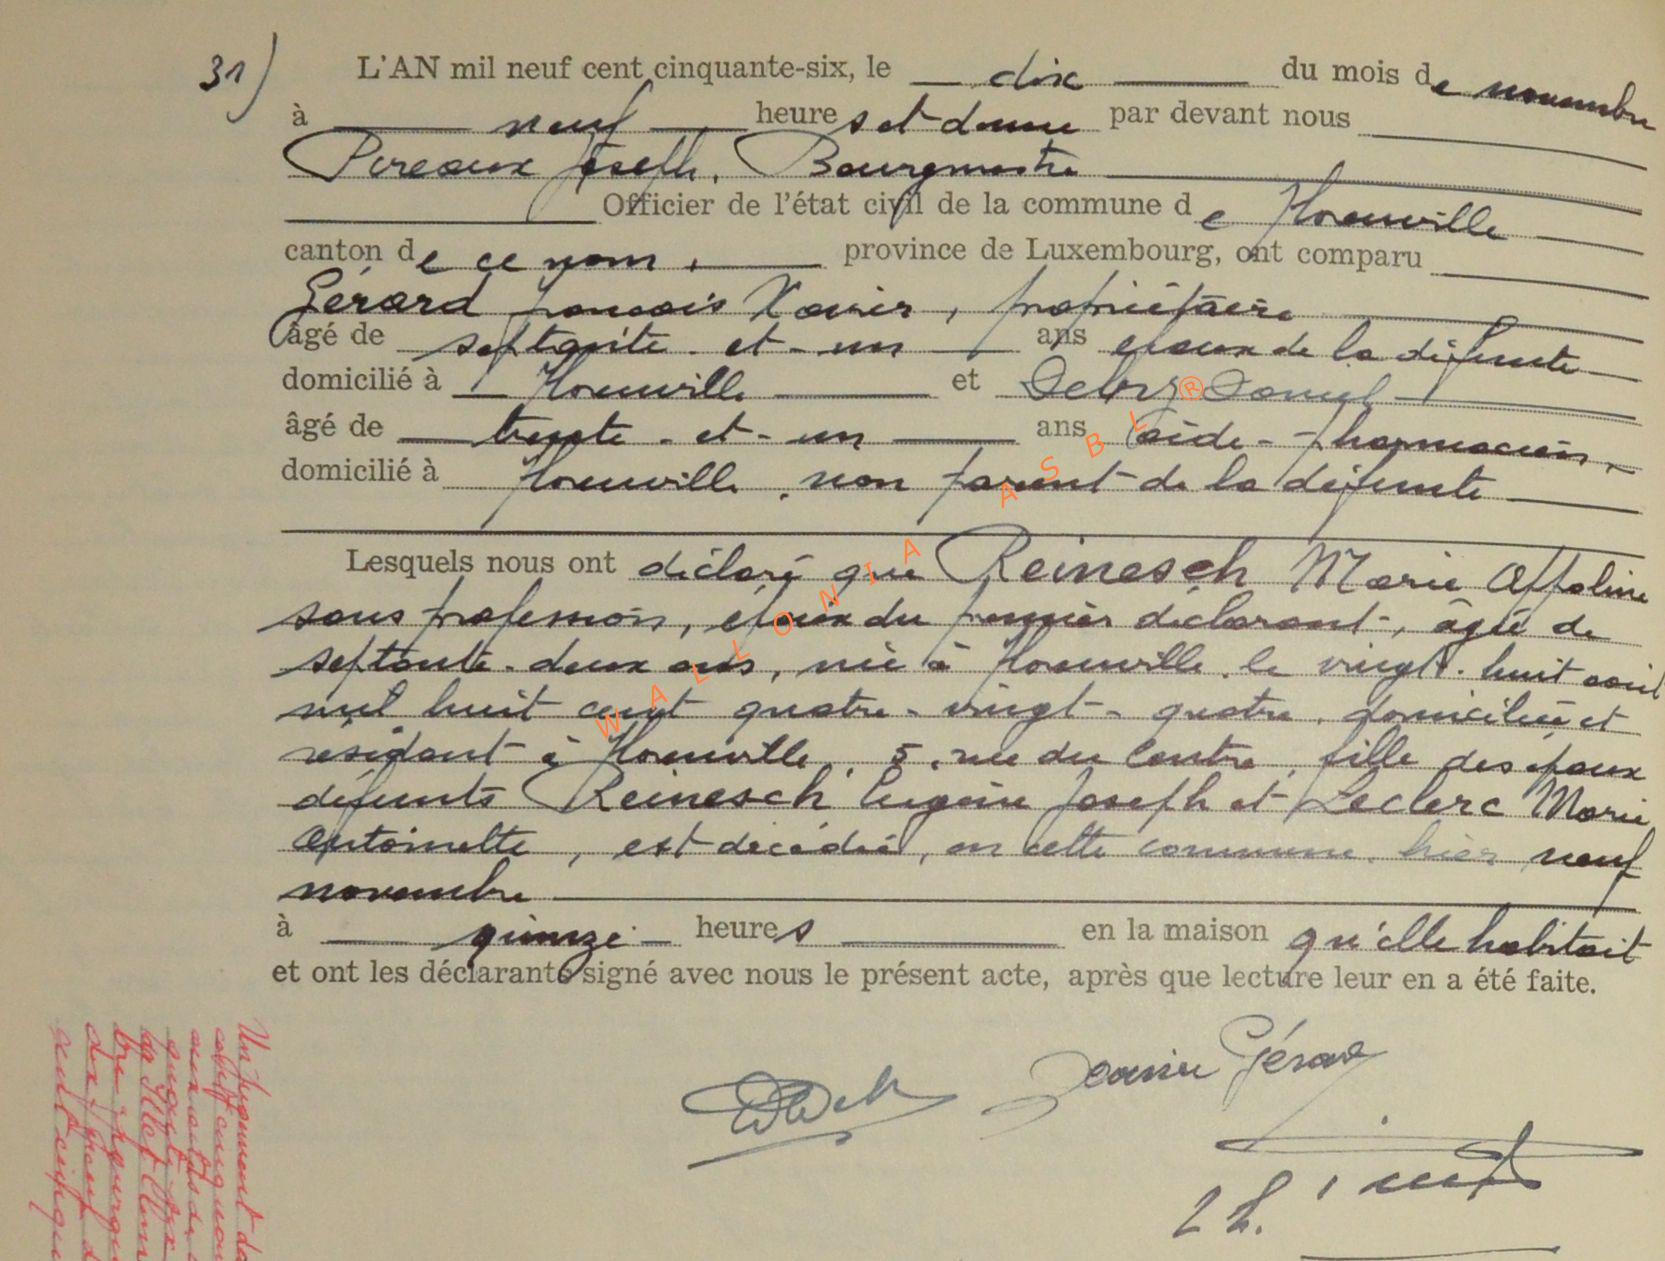 31) L'AN mil neuf cent cinquante-six, le dix du mois de novembre
à neuf heures et demie par devant nous
Pireaux Joseph, Bourgmestre
Officier de l'état civil de la commune de Houuville
canton de ce nom, province de Luxembourg, ont comparu
Gérard François Xavier, propriétaire
âgé de septante et un ans époux de la défunte
domicilié à Houuville et Debry Daniel
âgé de trente-et-un ans aide-pharmacien,
domicilié à Houuville, non parent de la défunte
Lesquels nous ont déclaré que Reinesch Marie Appoline
sans profession, épouse du premier déclarant, âgée de
septante-deux ans, née à Houuville le vingt-huit août
mil huit cent quatre-vingt-quatre, domiciliée et
résidant à Houuville, 5, rue du Centre, fille des époux
défunts Reinesch Eugène Joseph et Leclerc Marie
Antoinette, est décédée, en cette commune, hier neuf
novembre
à quinze heures en la maison qu'elle habitait
et ont les déclarants signé avec nous le présent acte, après que lecture leur en a été faite.
Gérard
WALLONIA ASBL®
Un jugement